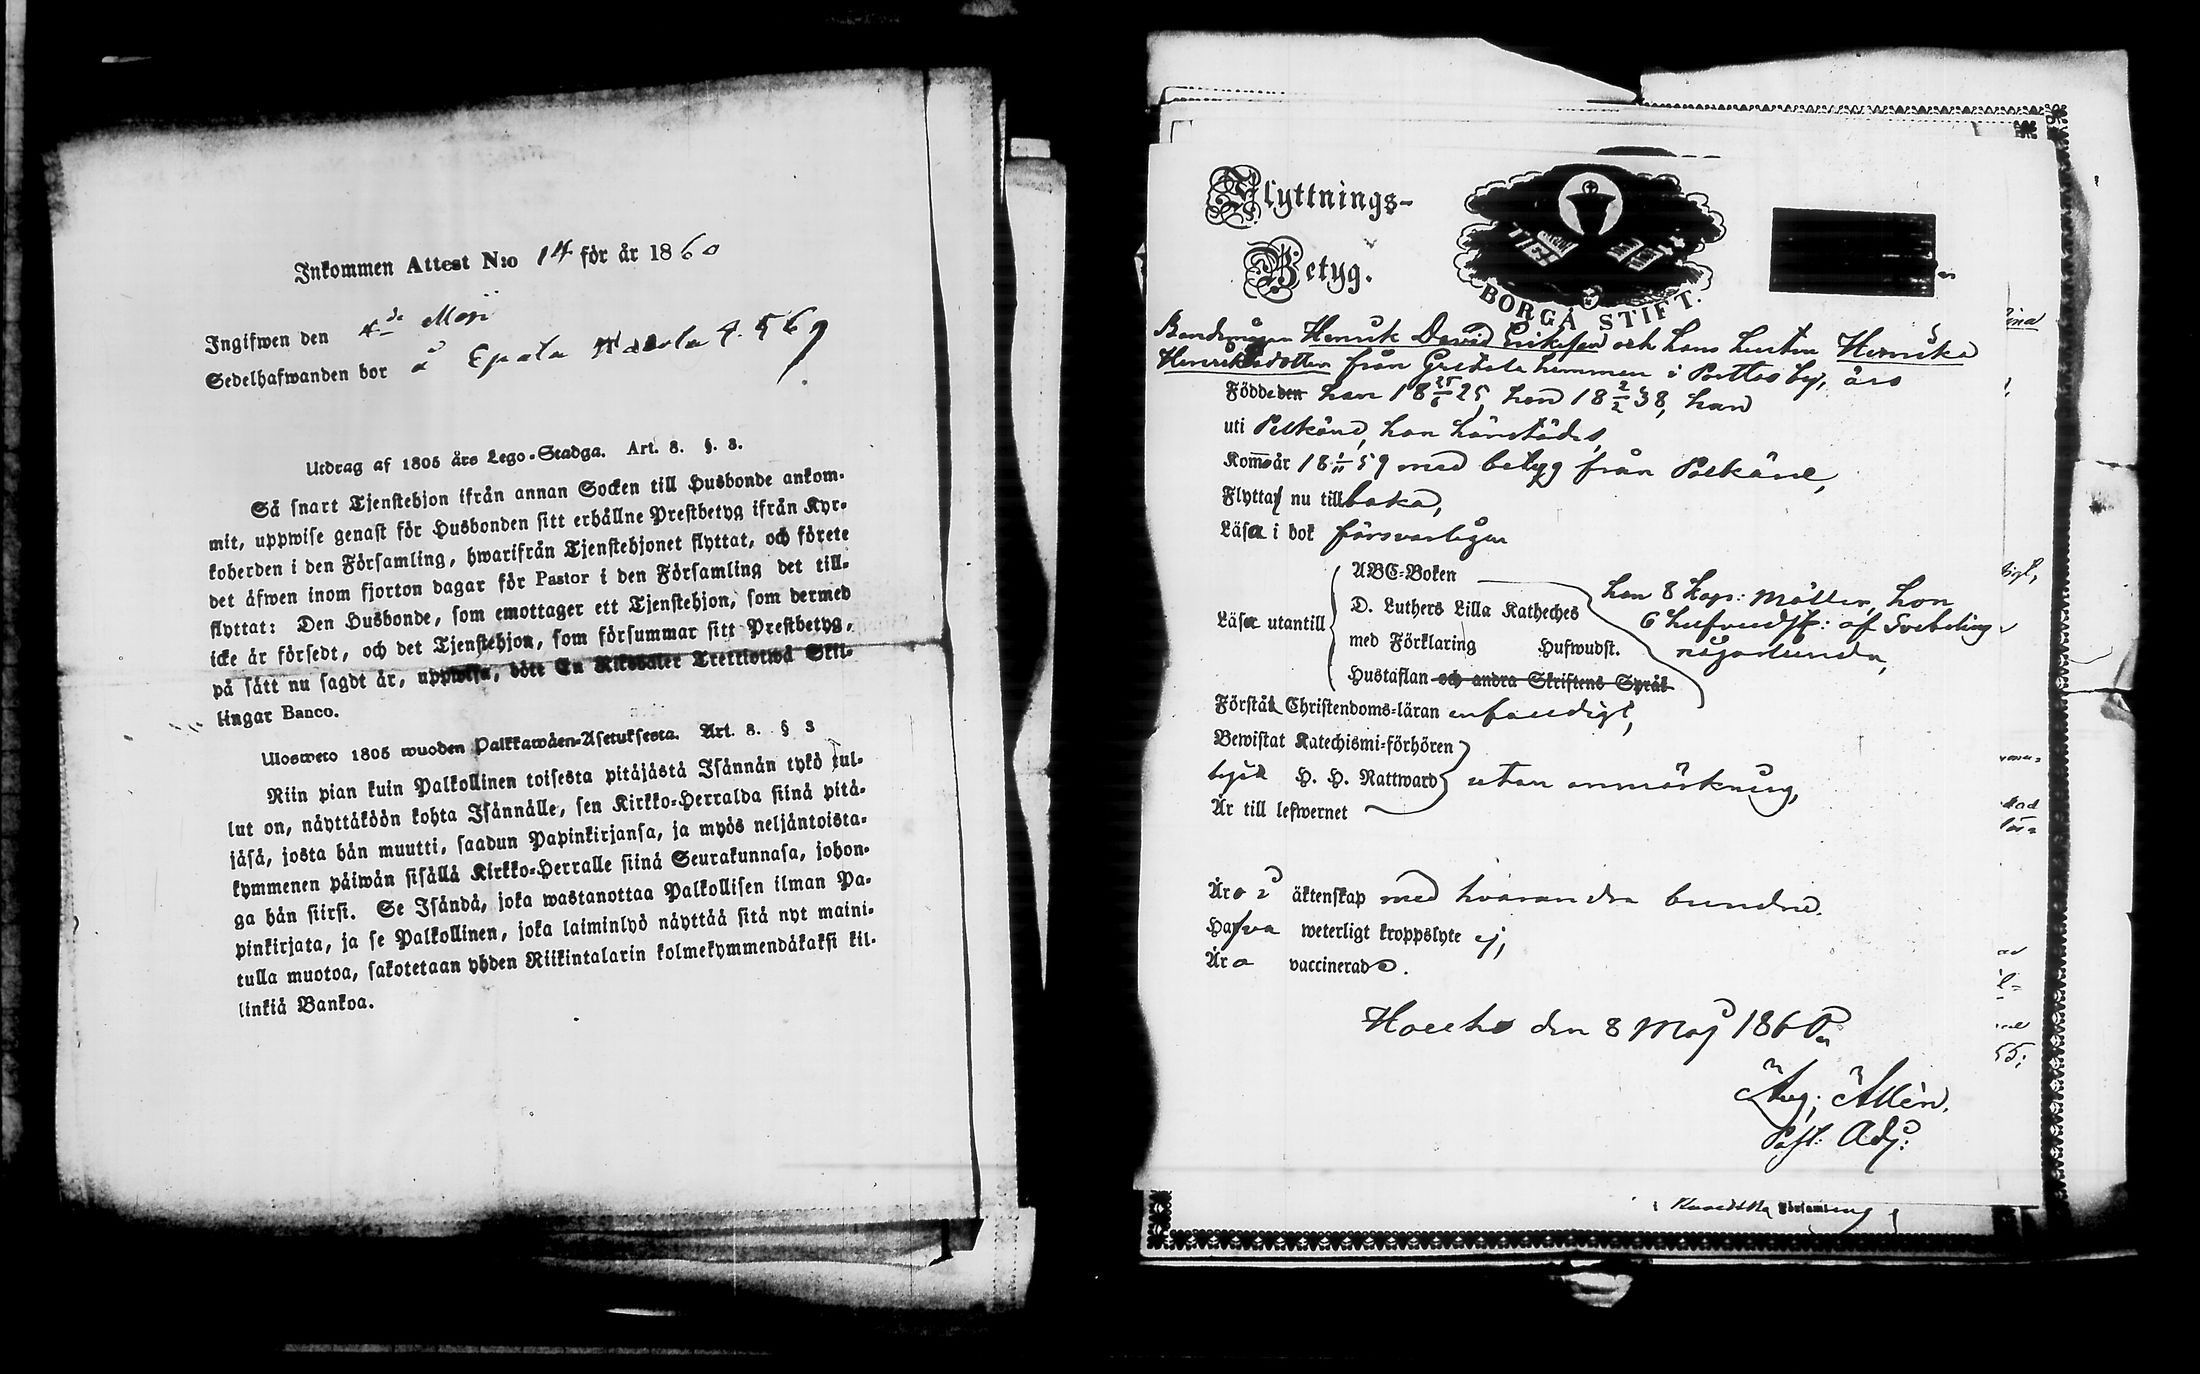 Inkommen Attest N:o 14 för år 1860
Ingifwen den 4de Maji
Sedelhafwanden bor å Epala
Utdrag af 1805 års Lego-Stadga. Art. 8. §. 3.
Så snart Tjenstehjon ifrån annan Socken till Husbonde ankom-
mit, uppwise genast för Husbonden sitt erhållne Prestbetyg ifrån Kyr-
koherden i den Församling, hwarifrån Tjenstehjonet flyttat, och förete
det äfwen inom fjorton dagar för Pastor i den Församling det till-
flyttat: Den Husbonde, som emottager ett Tjenstehjon, som dermed
icke är försedt, och det Tjenstehjon, som försummar sitt Prestbetyg,
på sätt nu sagdt är, uppwisa, böte En Riksdaler Trettiotwå Skil-
lingar Banco.
Ulosweto 1805 wuoden Palkkawäen-Asetuksesta. Art. 8. § 3
Niin pian kuin Palkollinen toisesta pitäjästä Isännän tykö tul-
lut on, näyttäköön kohta Isännälle, sen Kirkko-Herralda siinä pitä-
jäsä, josta hän muutti, saadun Papinkirjansa, ja myös neljäntoista-
kymmenen päiwän sisällä Kirkko-Herralle siinä Seurakunnasa, johon-
ga hän siirsi. Se Isändä, joka wastanottaa Palkollisen ilman Pa-
pinkirjata, ja se Palkollinen, joka laiminlyö näyttää sitä nyt maini-
tulla muotoa, sakotetaan yhden Riikintalarin kolmekymmendäkaksi kil-
linkiä Bankoa.
Flyttnings-
Betyg.
BORGÅ STIFT.
Henrik David Eriksson och hans hustru Henrika
Henriksdotter från hemman i Porttas by, äro
Födde den han 18 25/6 25, hon 18 2/2 38, han
uti Pelkäne, hon härstädes,
Kommo år 18 1/11 59 med betyg från Pelkäne,
Flytta nu tillbaka,
Läsa i bok försvarligen
Läsa utantill
ABC-Boken
D. Luthers Lilla Katheches
med Förklaring Hufwudst.
Hustaflan och andra Skriftens Språk
han 8 kap: Möller, hon
6 hufvudst: af Svebelius
någorlunda,
Förstå Christendoms-läran enfaldigt,
Bewistat Katechismi-förhören
H. H. Nattward utan anmärkning,
Är till lefwernet
Äro i äktenskap med hvarandra bundne.
Hafva weterligt kroppslyte ej,
Äro vaccinerade.
Hauho den 8 Maj 1860
Aug. Allén.
Past: Adj:
Församling